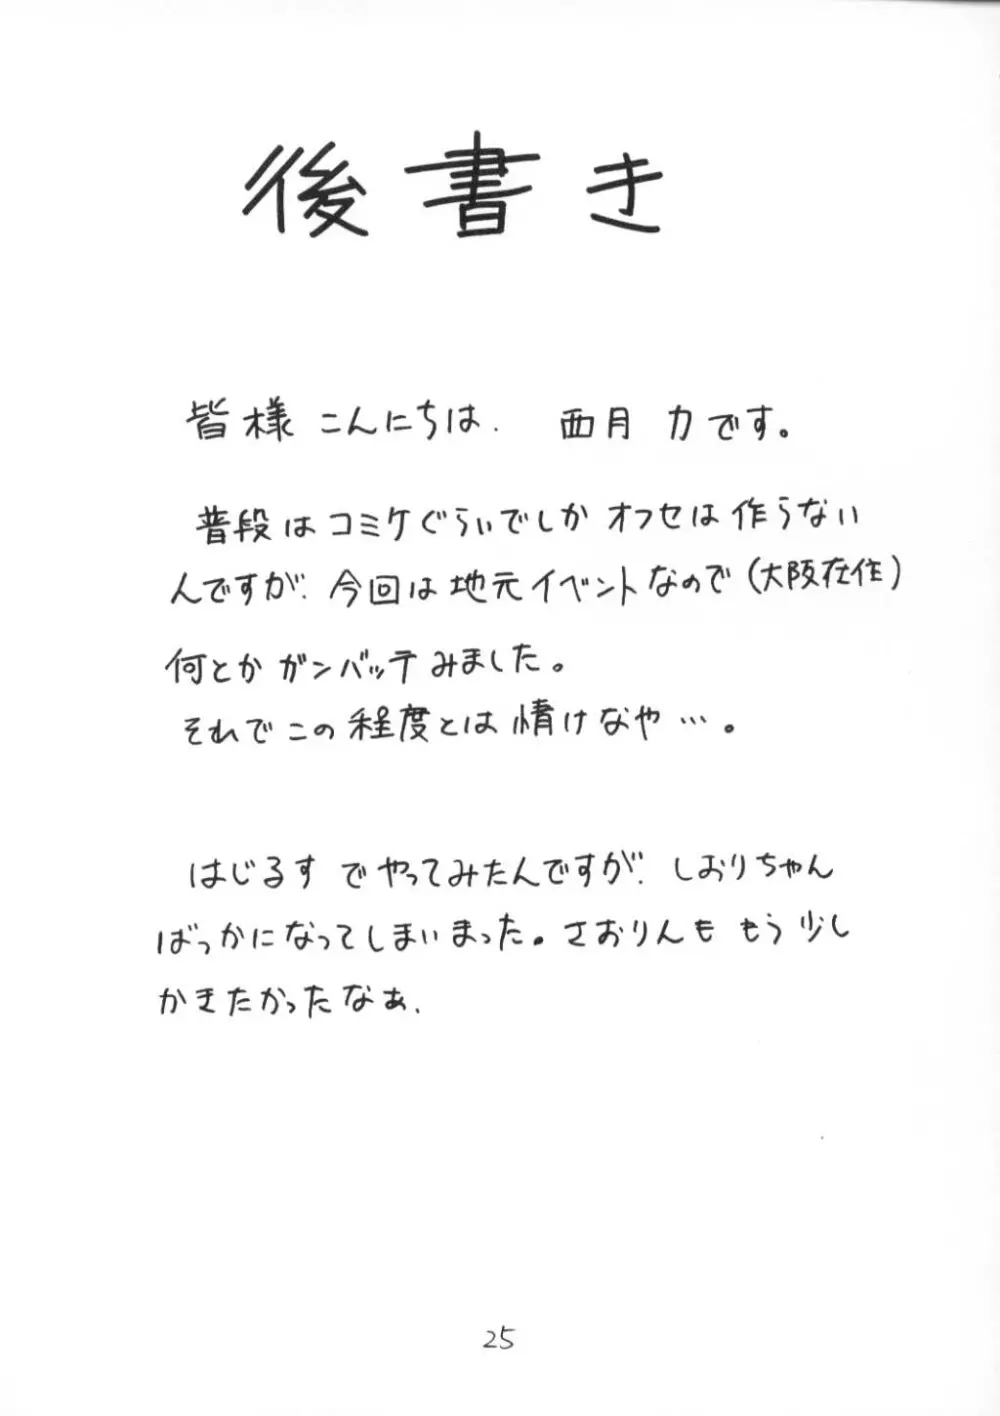 後書き
皆様 こんにちは. 西月 力です。
普段はコミケぐらいでしか オフセは作らない
んですが. 今回は地元イベントなので(大阪在住)
何とか ガンバッテみました。
それでこの程度とは情けなや…。
はじるす でやってみたんですが. しおりちゃん
ばっかになってしまいまった。さおりんも もう少し
かきたかったなぁ.
25